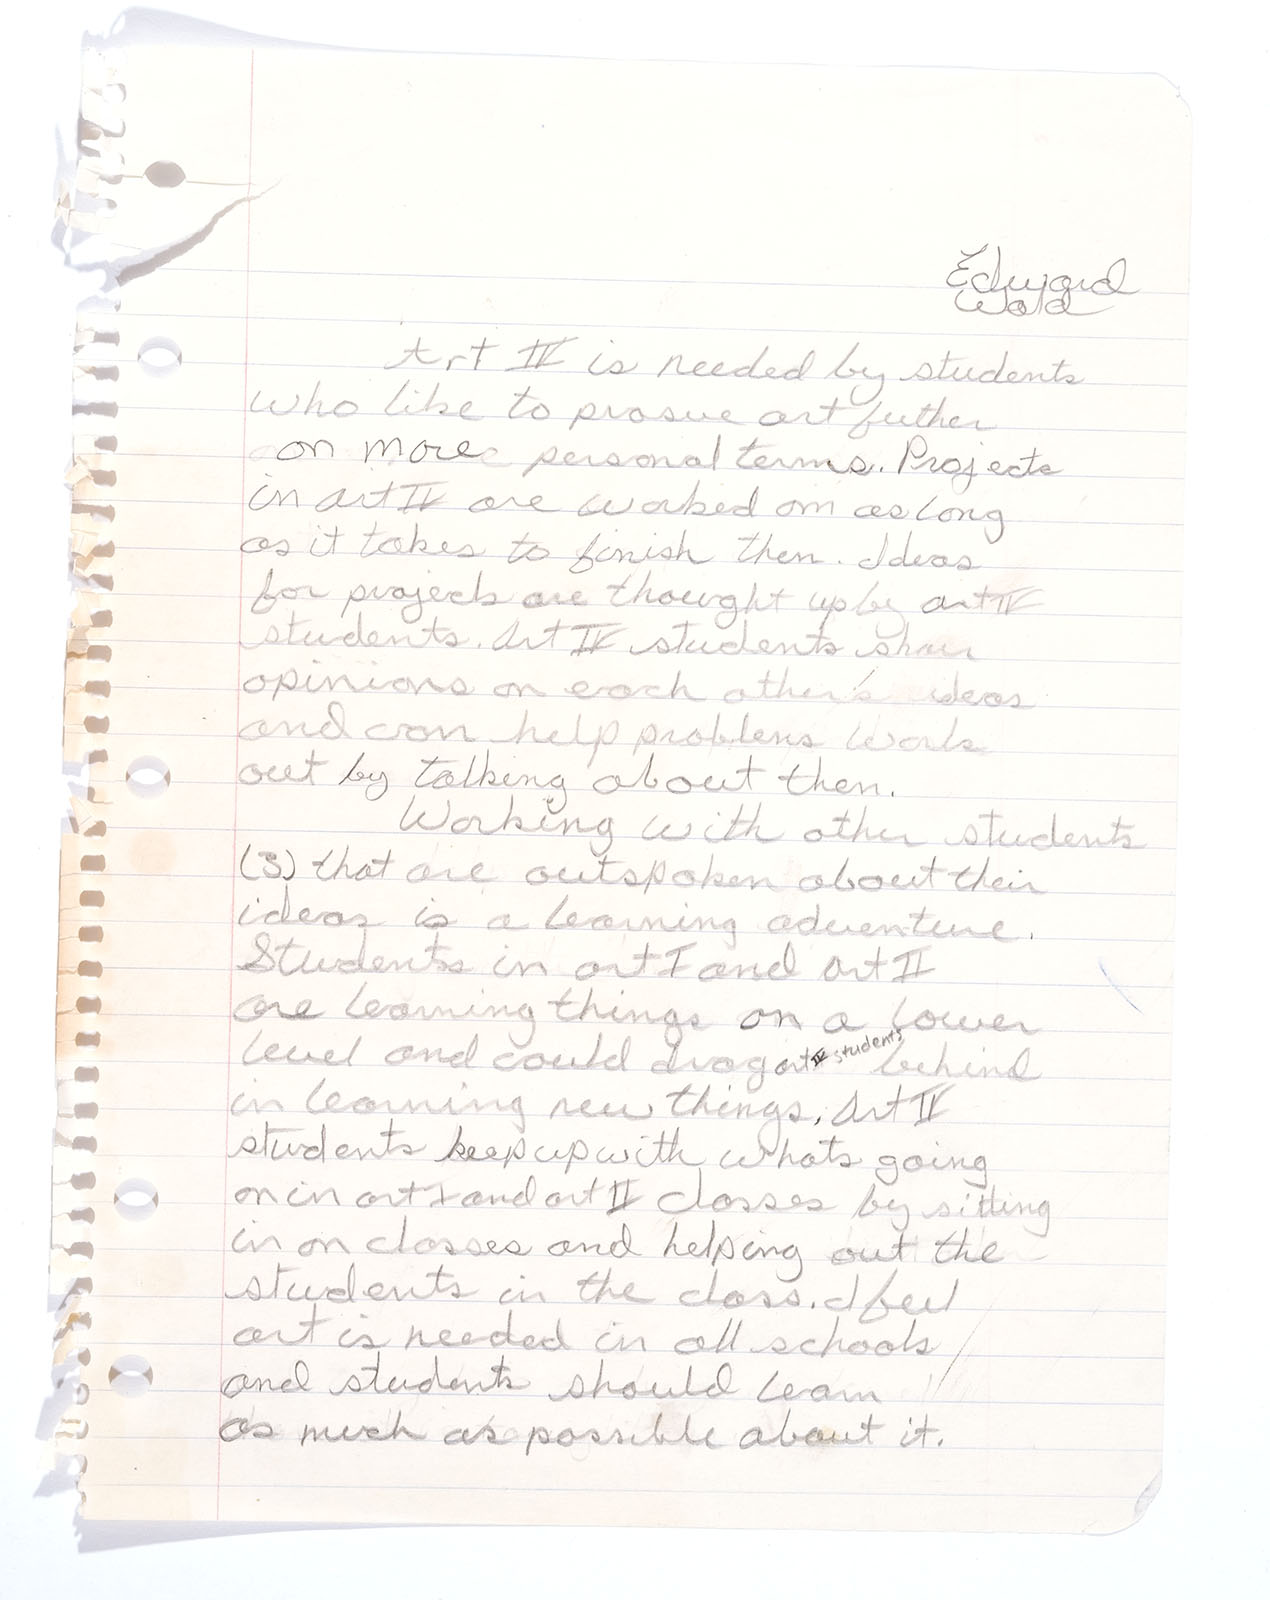 Edward
Wold
Art IV is needed by students
who like to prosue art futher
on more personal terms. Projects
in art IV are worked on as long
as it takes to finish then. Ideas
for projects are thought up by art IV
students. Art IV students share
opinions on each other's ideas
and can help problems work
out by talking about then.
Working with other students
(3) that are outspoken about their
ideas is a learning adventure.
Students in art I and art II
are learning things on a lower
level and could drag art IV students behind
in learning new things. Art IV
students keep up with whats going
on in art I and art II classes by sitting
in on classes and helping out the
students in the class. I feel
art is needed in all schools
and students should learn
as much as possible about it.